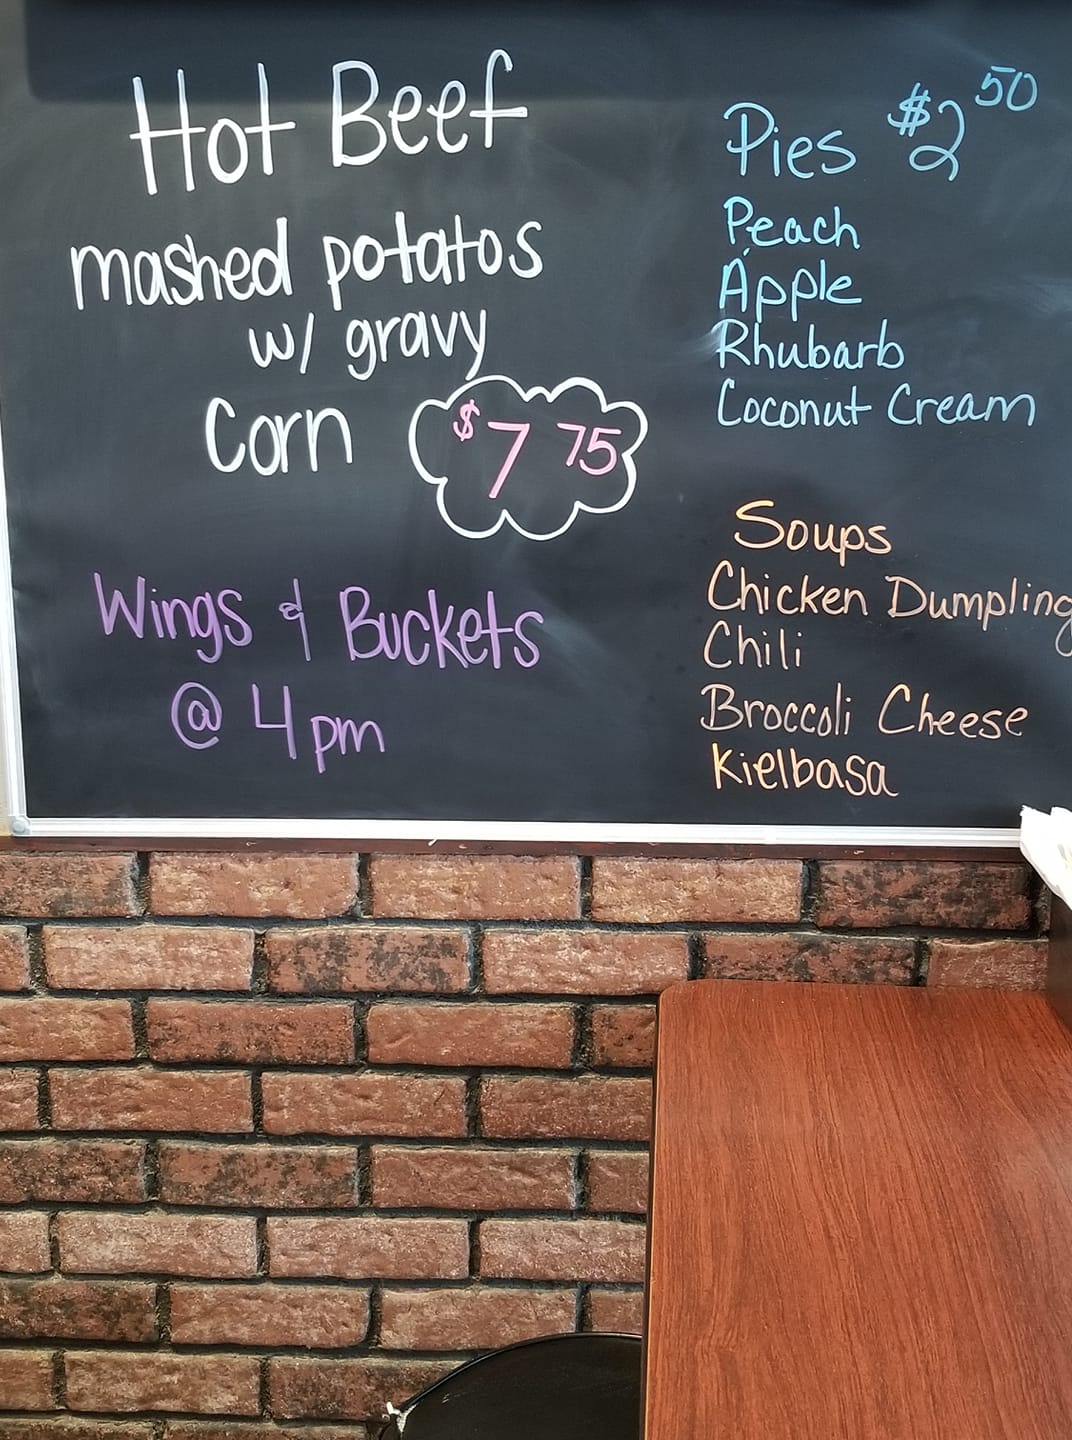 Hot Beef
mashed potatos
w/ gravy
Corn $7 75
Wings & Buckets
@ 4pm
Pies $2 50
Peach
Apple
Rhubarb
Coconut Cream
Soups
Chicken Dumpling
Chili
Broccoli Cheese
Kielbasa